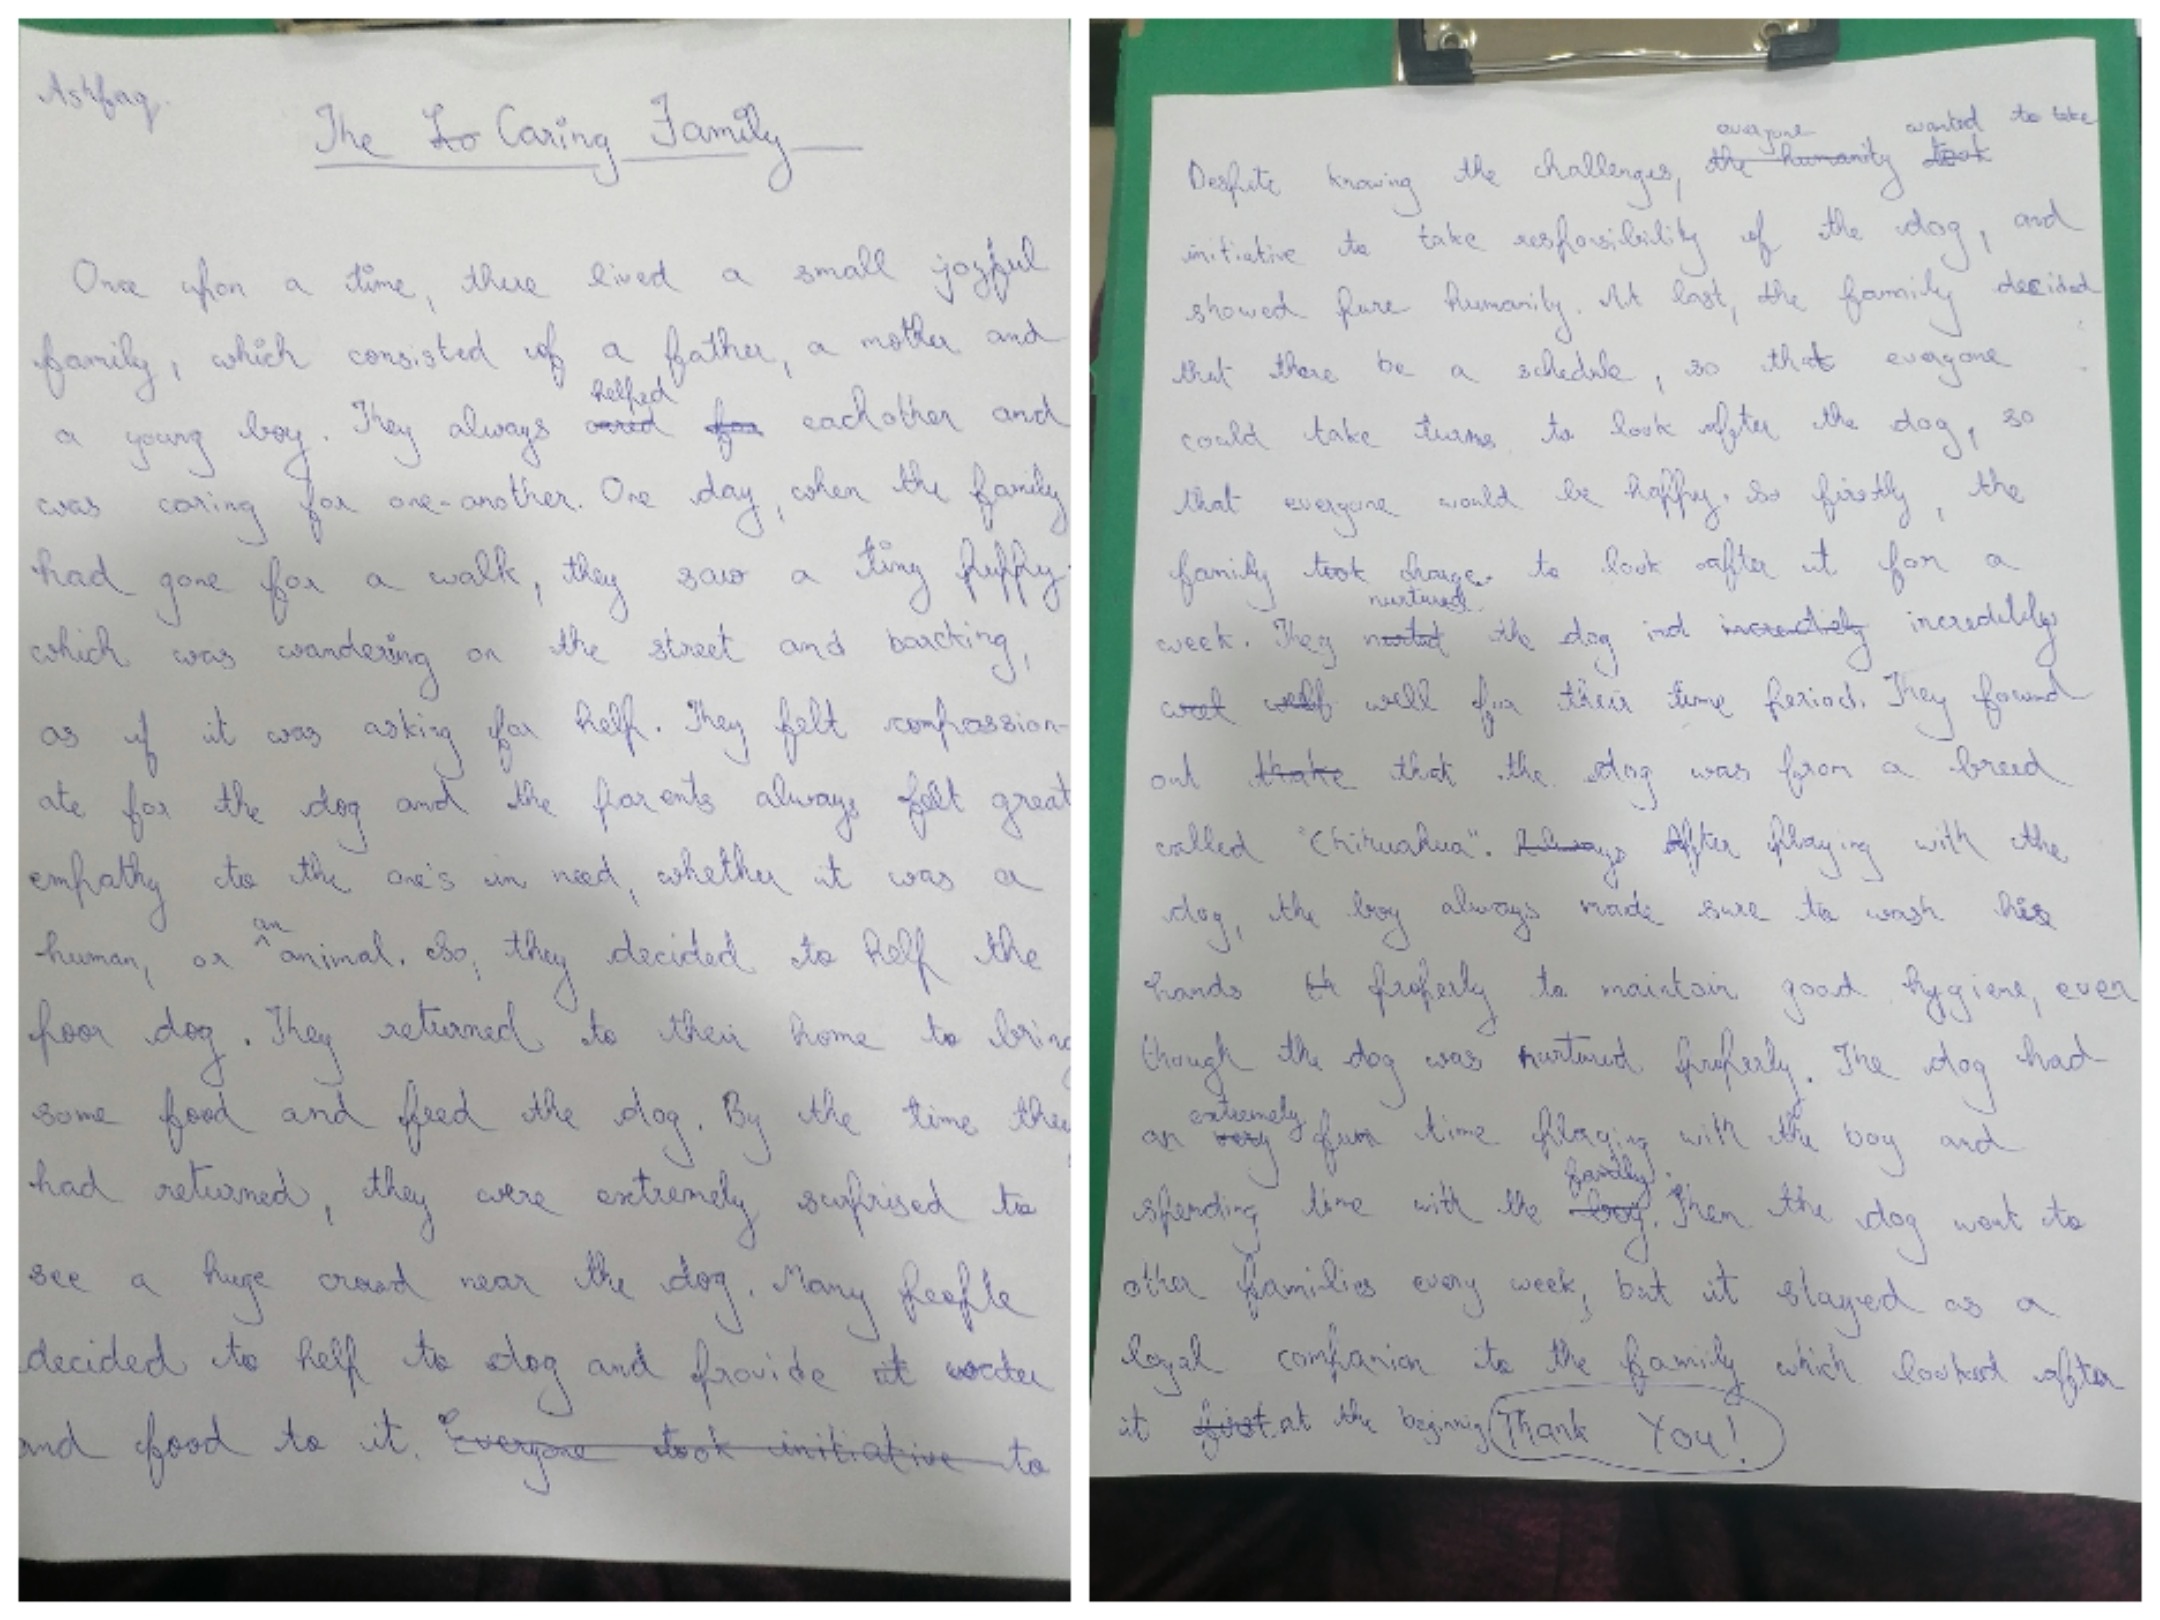 Ashfaq.
The Lo Caring Family
Once upon a time, there lived a small joyful
family, which consisted of a father, a mother and
helped
a young boy. They always cared for eachother and
was caring for one-another. One day, when the family
had gone for a walk, they saw a tiny puppy
which was wandering on the street and barcking,
as if it was asking for help. They felt compassion-
ate for the dog and the parents always felt great
empathy to the one's in need, whether it was a
an
human, or ^ animal. So, they decided to help the
poor dog. They returned to their home to bring
some food and feed the dog. By the time they
had returned, they were extremely surprised to
see a huge crowd near the dog. Many people
decided to help to dog and provide it water
and food to it. Everyone took initiative to
everyone wanted to take
Despite knowing the challenges, the humanity took
initiative to take responsibility of the dog, and
showed pure humanity. At last, the family decided
that there be a schedule, so that everyone
could take turns to look after the dog, so
that everyone would be happy. So firstly, the
family took charge to look after it for a
nurtured
week. They the dog incredibly
well for their time period. They found
out that the dog was from a breed
called "Chihuahua". Always After playing with the
dog, the boy always made sure to wash his
hands properly to maintain good hygiene, even
though the dog was nurtured properly. The dog had
extremely
an very fun time playing with the boy and
family.
spending time with the boy. Then the dog went to
other families every week, but it stayed as a
loyal companion to the family which looked after
it first at the beginning Thank You!